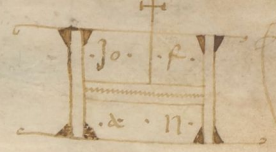 · Jo · f ·
· & · n ·